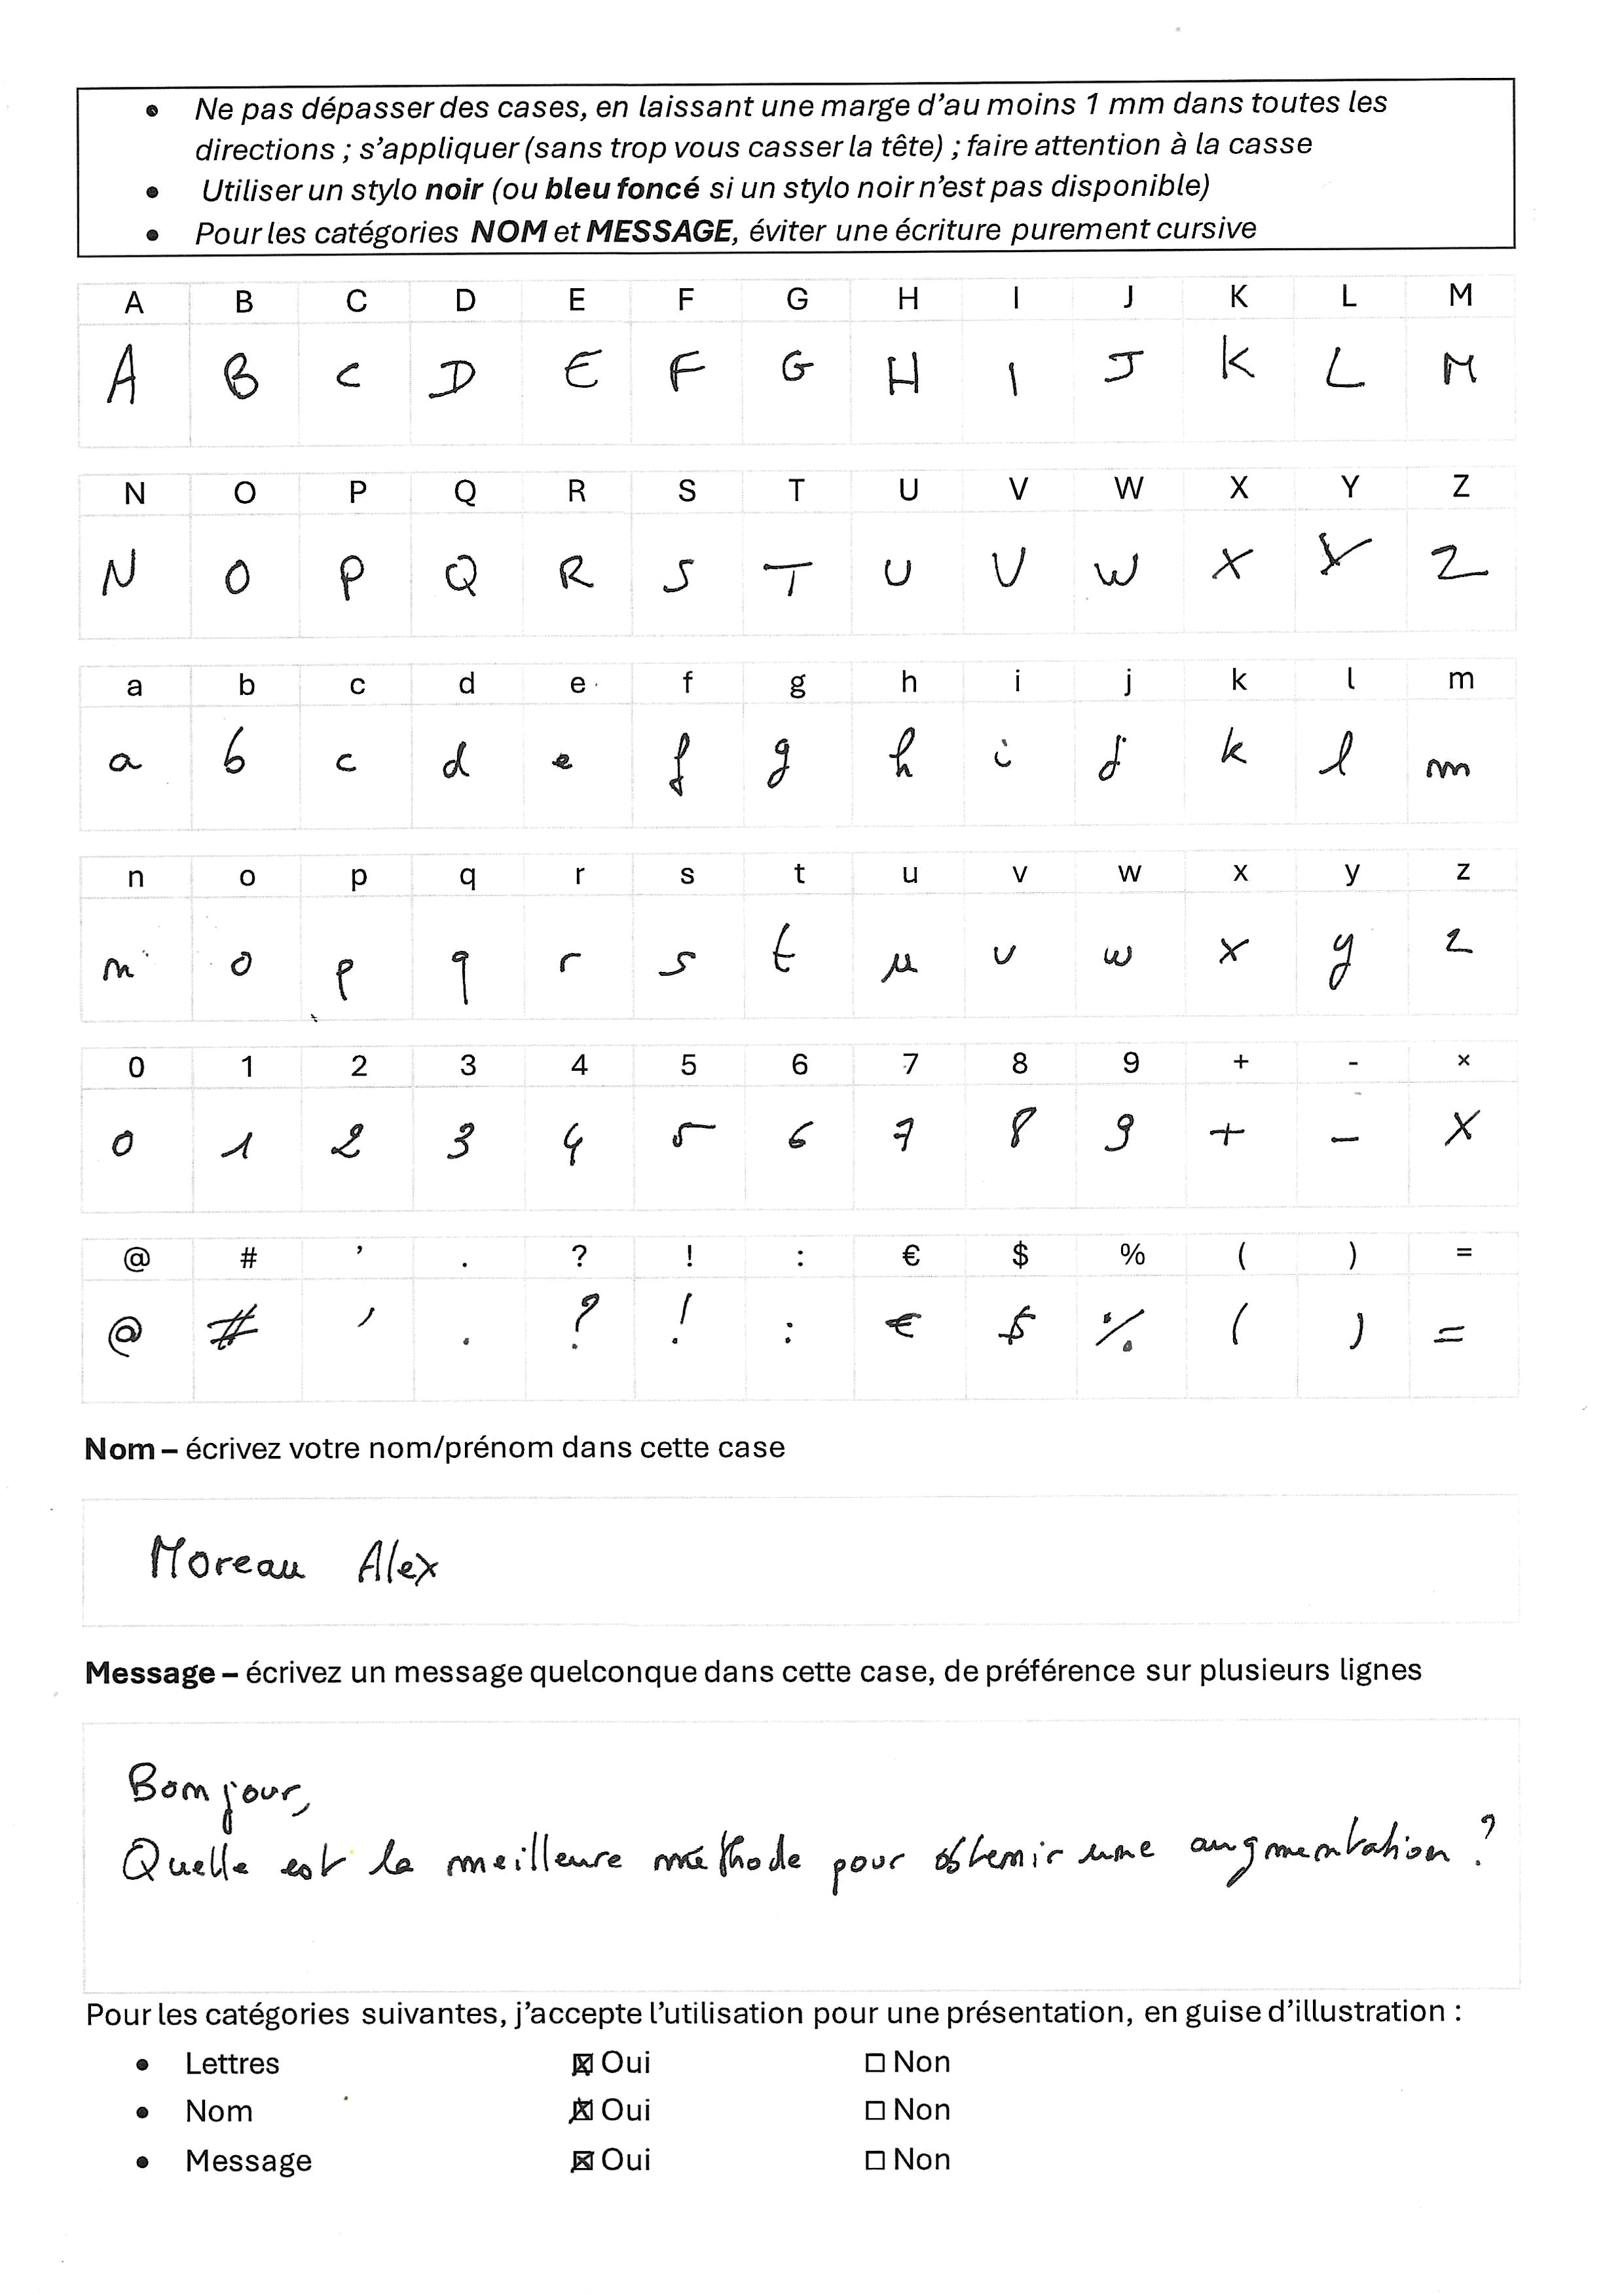 • Ne pas dépasser des cases, en laissant une marge d'au moins 1 mm dans toutes les
directions ; s'appliquer (sans trop vous casser la tête) ; faire attention à la casse
• Utiliser un stylo noir (ou bleu foncé si un stylo noir n'est pas disponible)
• Pour les catégories NOM et MESSAGE, éviter une écriture purement cursive
A B C D E F G H I J K L M
A B C D E F G H I J K L M
N O P Q R S T U V W X Y Z
N O P Q R S T U V W X Y Z
a b c d e f g h i j k l m
a b c d e f g h i j k l m
n o p q r s t u v w x y z
n o p q r s t u v w x y z
0 1 2 3 4 5 6 7 8 9 + - ×
0 1 2 3 4 5 6 7 8 9 + - ×
@ # ’ . ? ! : € $ % ( ) =
@ # ’ . ? ! : € $ % ( ) =
Nom – écrivez votre nom/prénom dans cette case
Moreau Alex
Message – écrivez un message quelconque dans cette case, de préférence sur plusieurs lignes
Bonjour,
Quelle est la meilleure méthode pour obtenir une augmentation ?
Pour les catégories suivantes, j'accepte l'utilisation pour une présentation, en guise d'illustration :
• Lettres ☒ Oui ☐ Non
• Nom ☒ Oui ☐ Non
• Message ☒ Oui ☐ Non